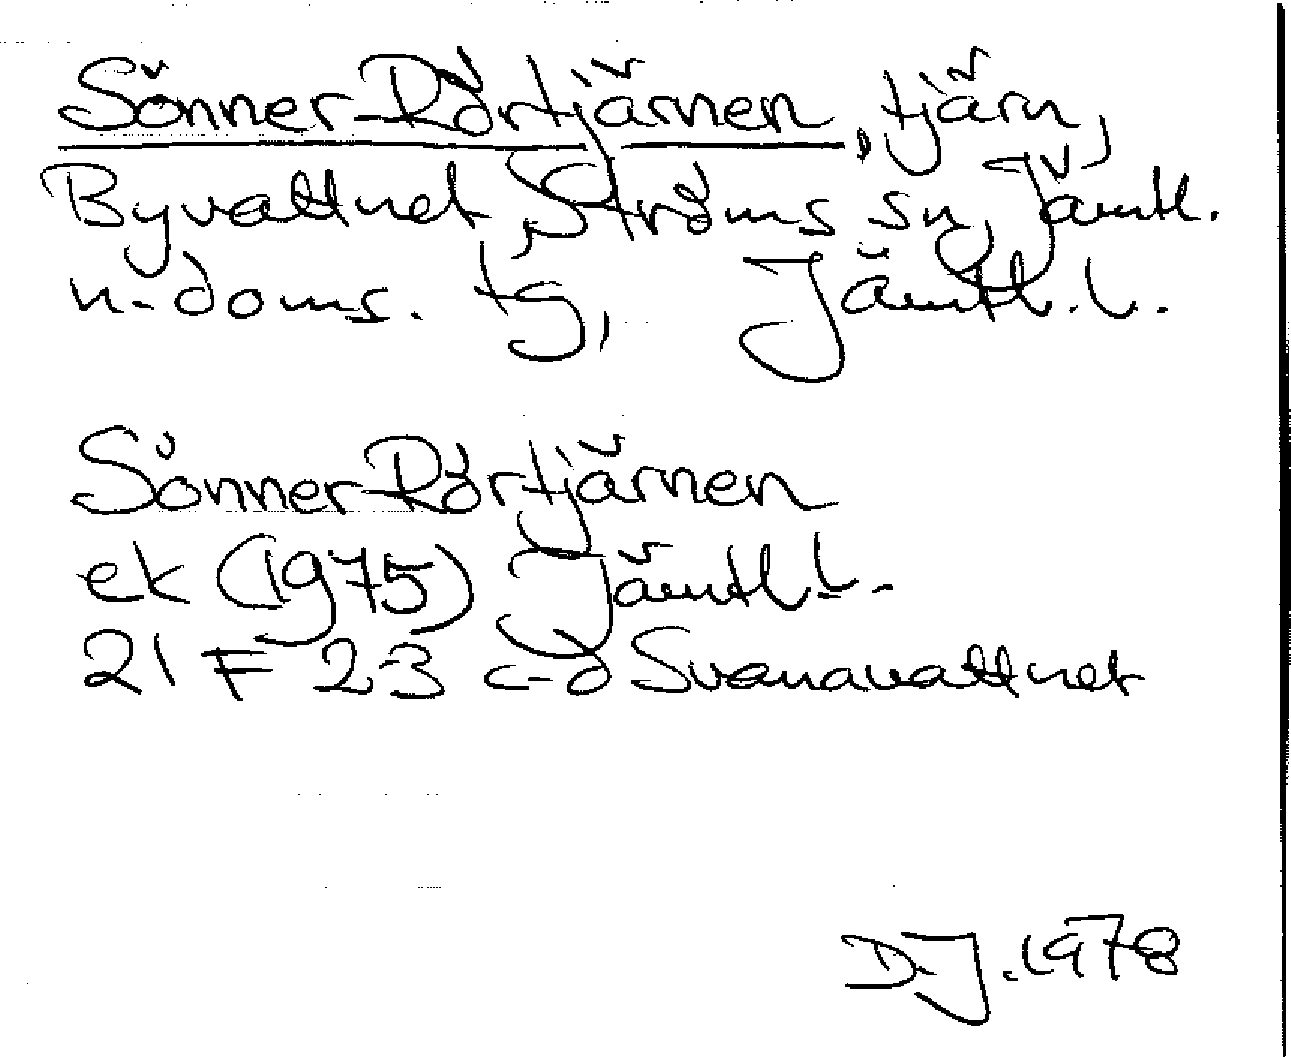 Sönner-Rörtjärnen, tjärn,
Byvattnet, Ströms sn, Jämtl.
n. doms. tg, Jämtl. l.
Sönner-Rörtjärnen
ek (1975) Jämtl. l.
21 F 2-3 c-d Svanavattnet
D.J. 1978